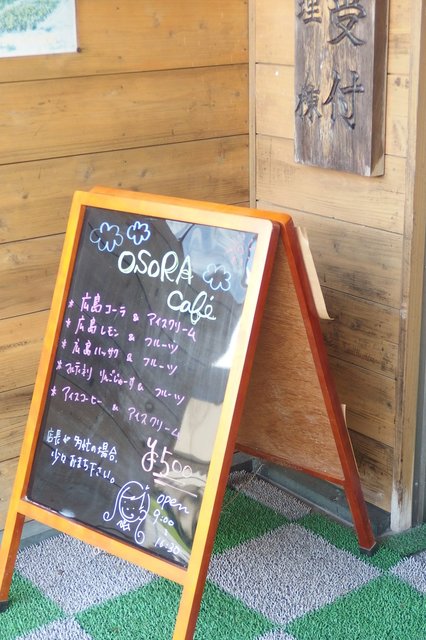 受付
理棟
OSORA
Café
* 広島コーラ & アイスクリーム
* 広島レモン & フルーツ
* 広島ハッサク & フルーツ
* りんごジュース & フルーツ
* アイスコーヒー & アイスクリーム
店長が多忙の場合、
少々お待ち下さい。
¥500
open
9:00
~
16:30